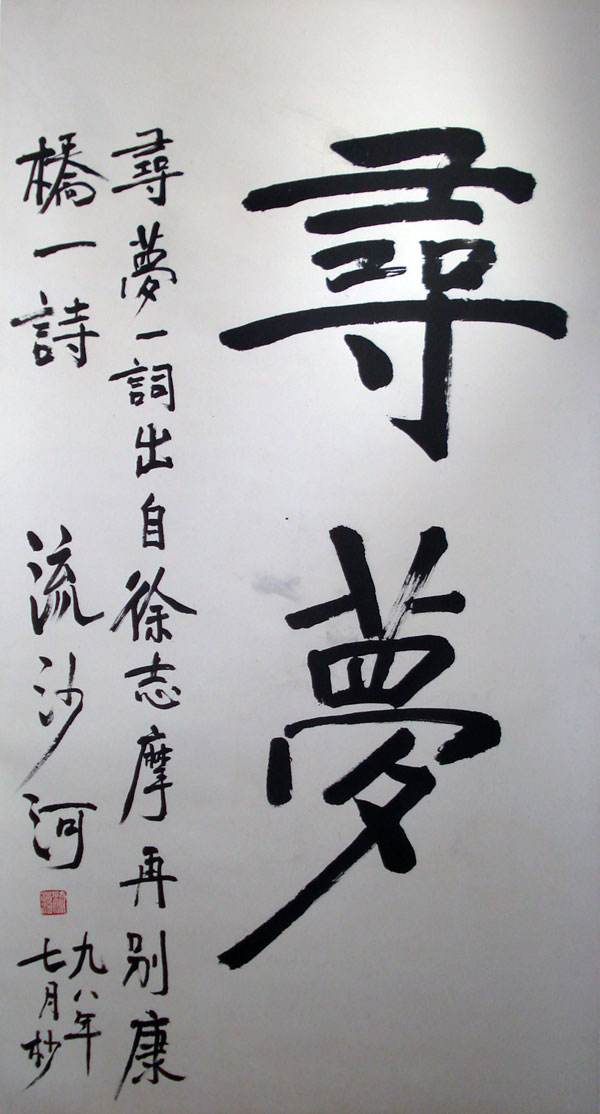 尋夢
尋夢一詞出自徐志摩再别康
橋一詩
流沙河
九八年
七月杪